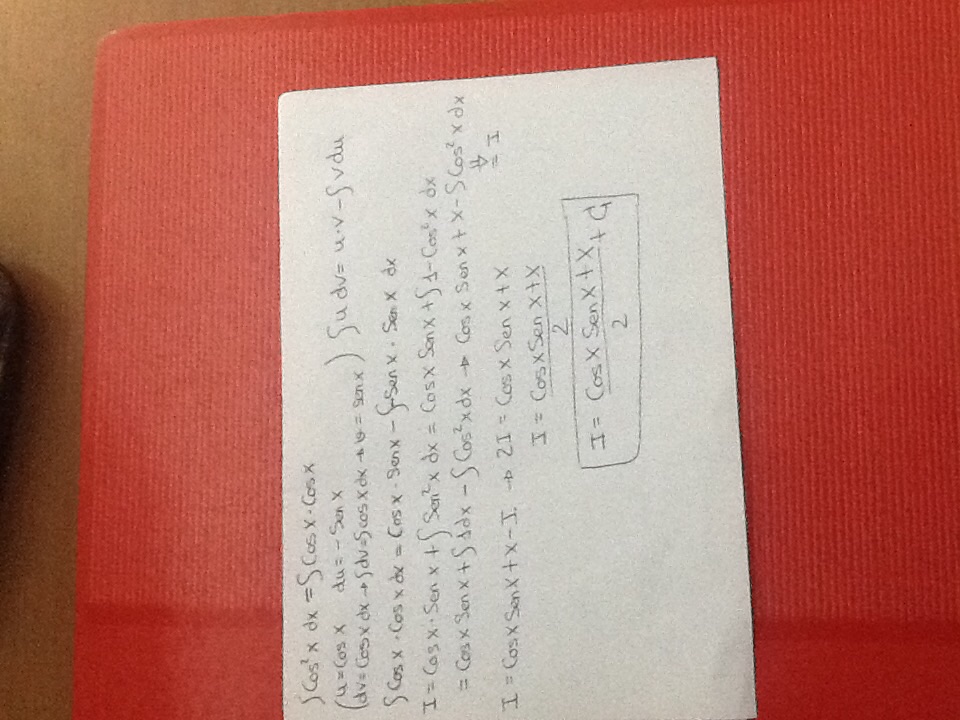 ∫Cos²x dx = ∫Cosx·Cosx
(u=Cosx du=-Senx
(dv=Cosxdx→∫dv=∫cosxdx→v=senx) ∫u dv=u·v-∫vdu
∫Cosx·Cosxdx=Cosx·Senx-∫-Senx·Senx dx
I=Cosx·Senx+∫Sen²x dx=CosxSenx+∫1-Cos²x dx
=CosxSenx+∫1dx-∫Cos²xdx→CosxSenx+x-∫Cos²xdx
⇓
=I
I=CosxSenx+x-I→2I=CosxSenx+x
I=CosxSenx+x
2
I=CosxSenx+x+C
2